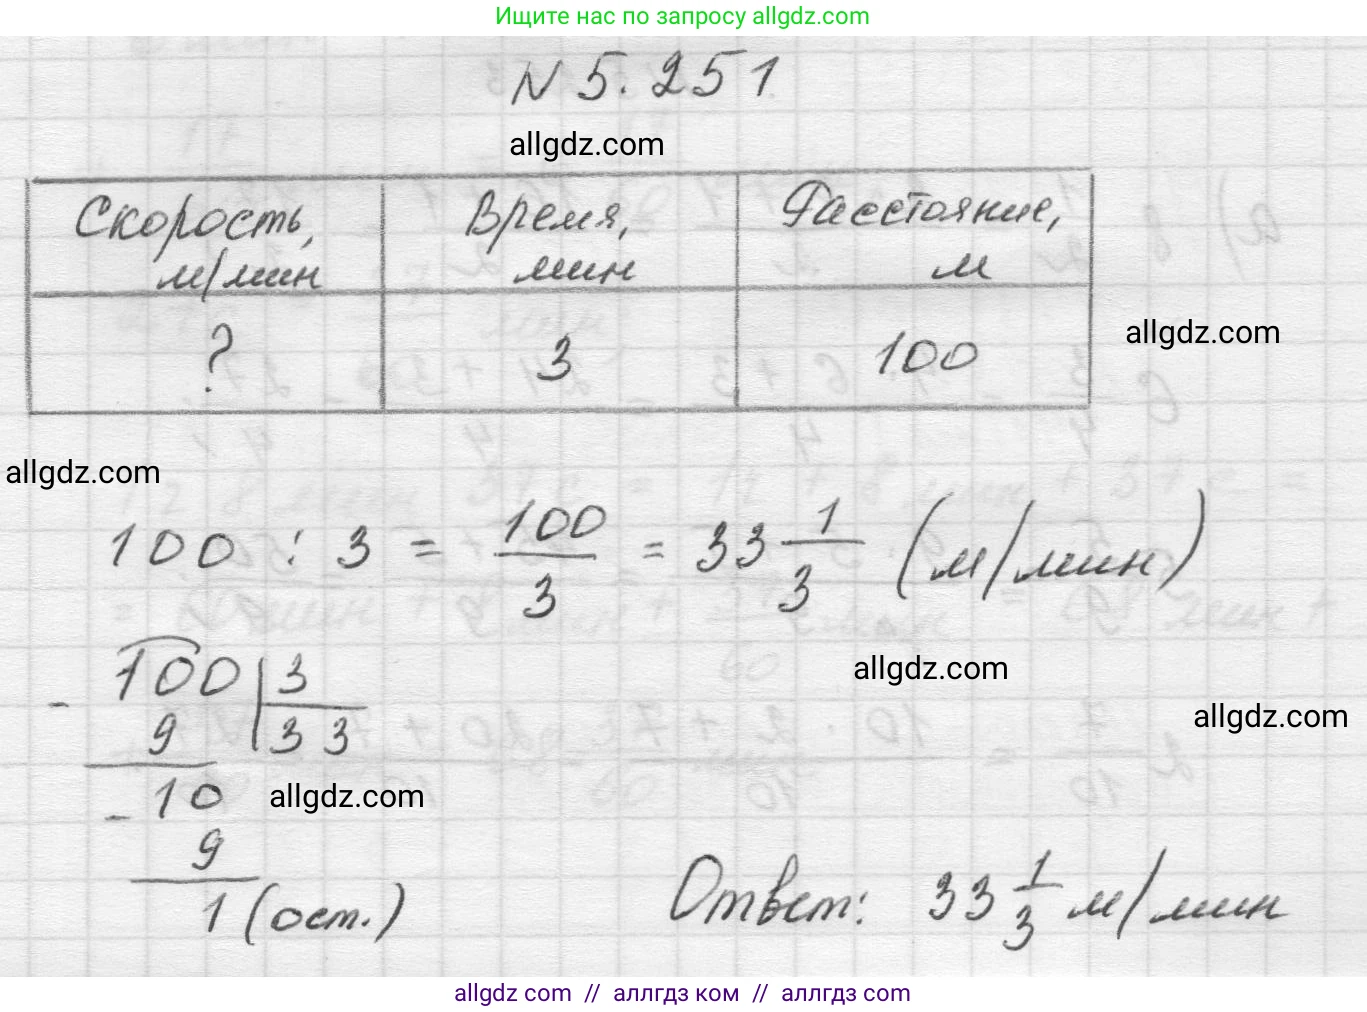 Ищите нас по запросу allgdz.com
N 5.251
allgdz.com
Скорость, м/мин Время, мин Расстояние, м
? 3 100
allgdz.com
allgdz.com
100 : 3 = 100/3 = 33 1/3 (м/мин)
100 | 3
allgdz.com
- 9 33
allgdz.com
- 10
allgdz.com
9
1 (ост.)
Ответ: 33 1/3 м/мин
allgdz.com // аллгдз ком // аллгдз com